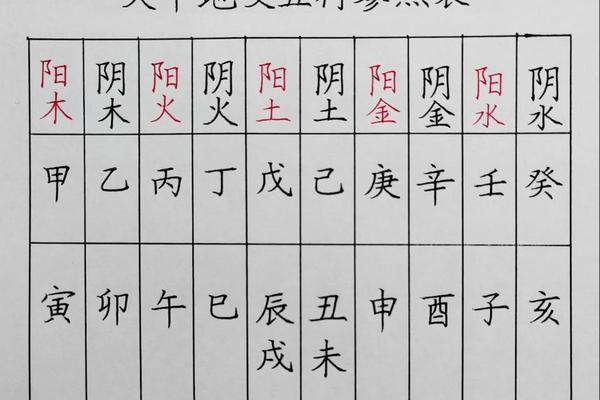 天干地支五行参照表
阳木 阴木 阳火 阴火 阳土 阴土 阳金 阴金 阳水 阴水
甲 乙 丙 丁 戊 己 庚 辛 壬 癸
寅 卯 午 巳 辰戌 丑未 申 酉 子 亥